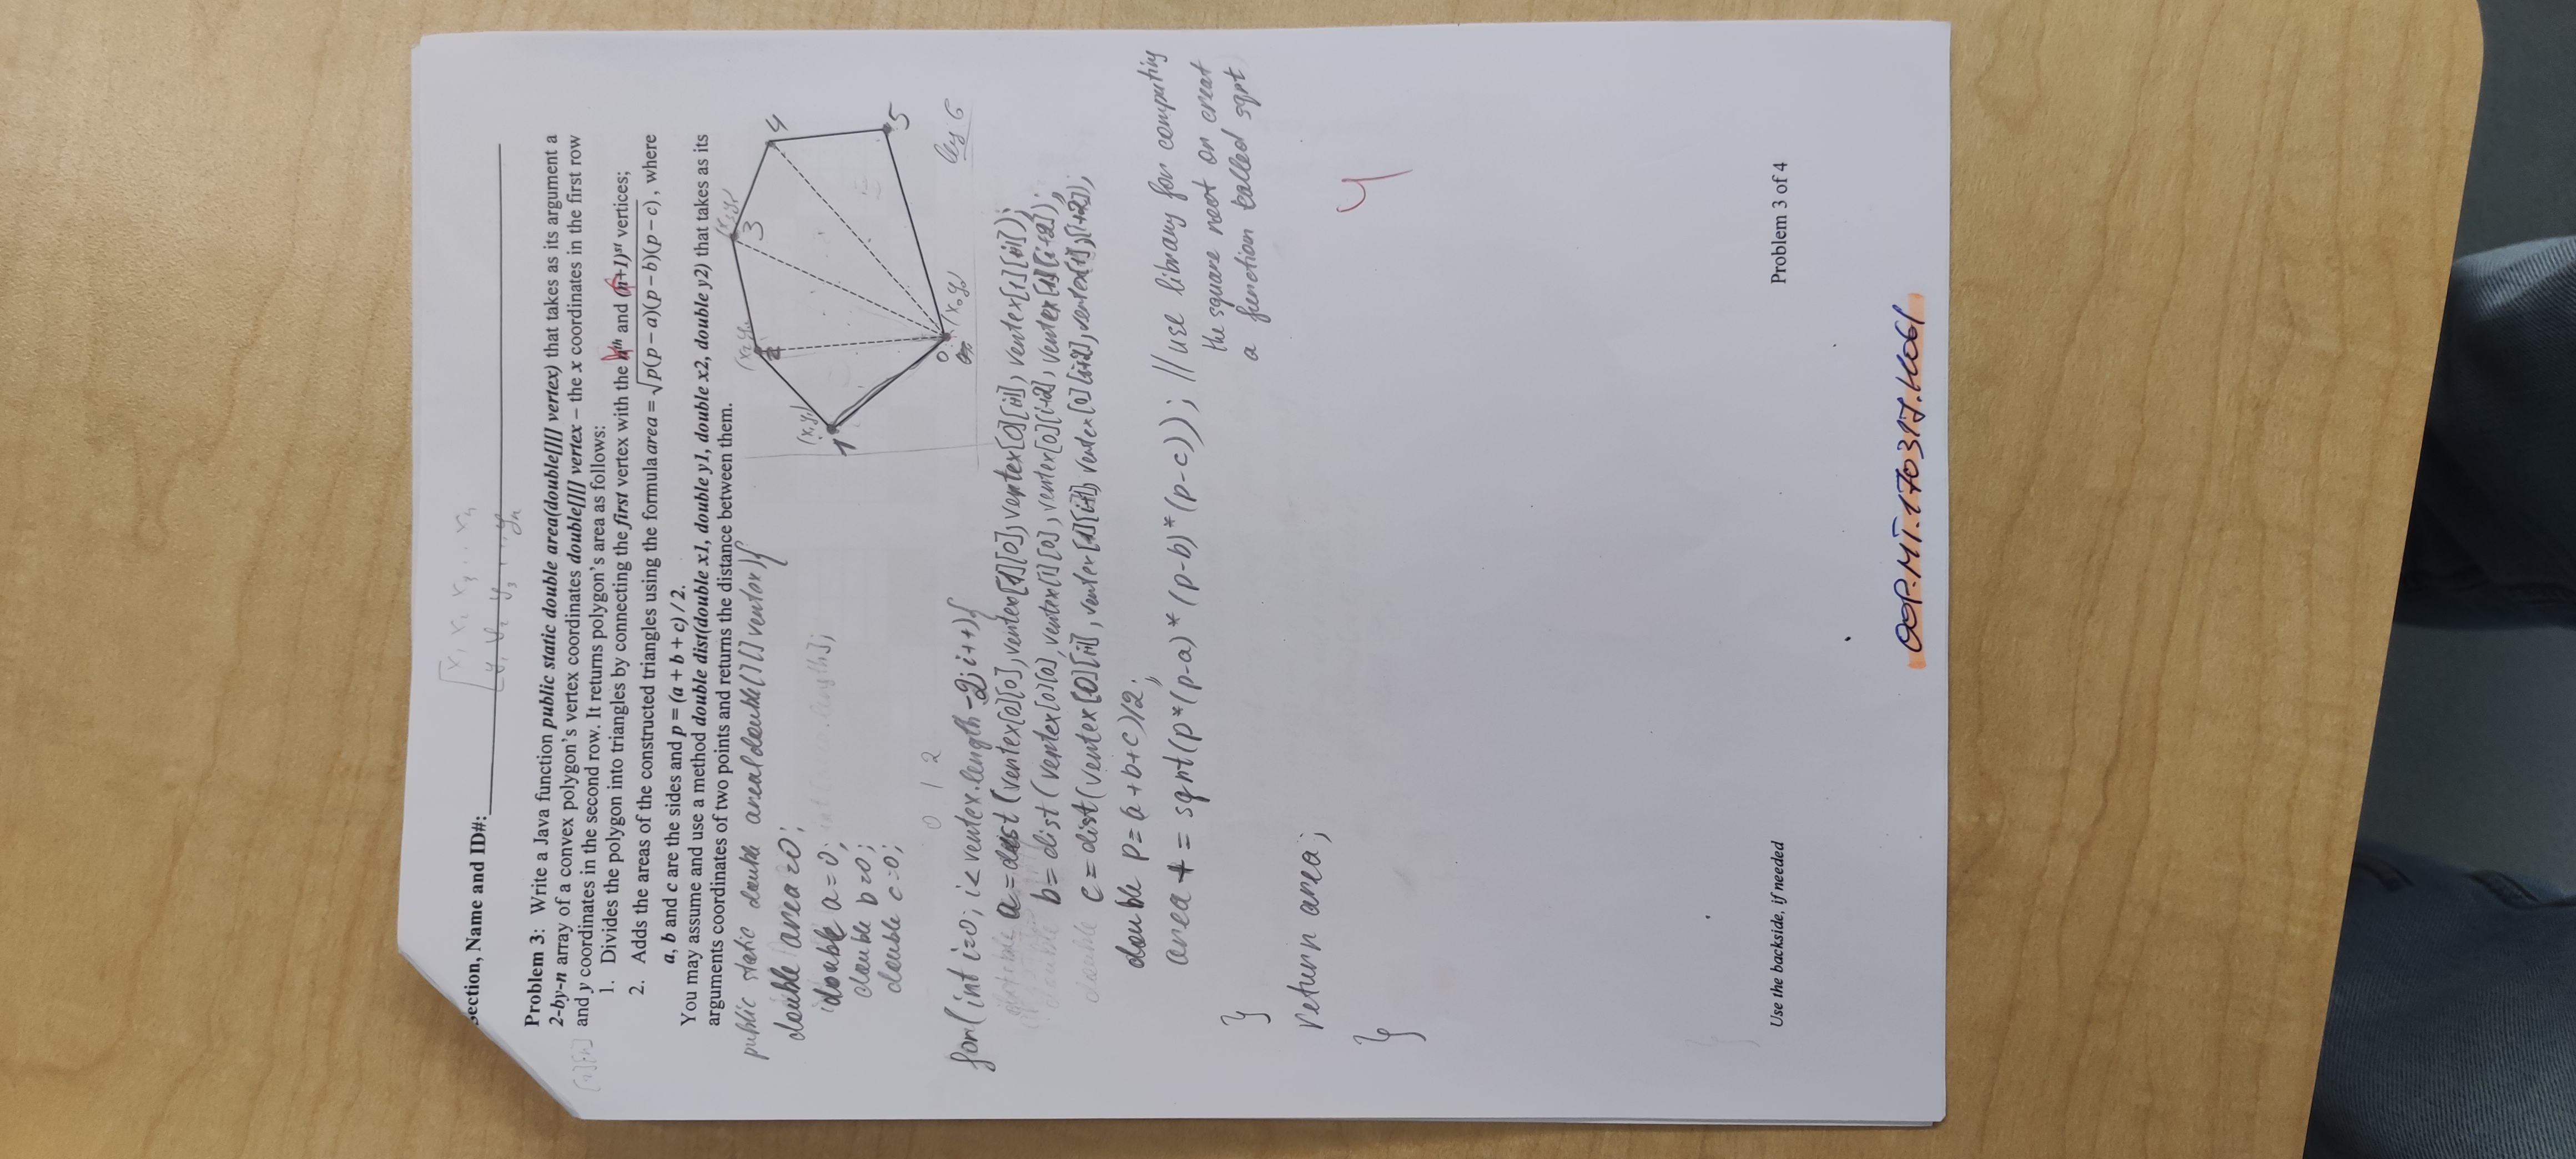 Section, Name and ID#:
[x1 x2 x3 ... xn
[y1 y2 y3 ... yn
Problem 3: Write a Java function public static double area(double[][] vertex) that takes as its argument a
[2][n] 2-by-n array of a convex polygon's vertex coordinates double[][] vertex – the x coordinates in the first row
and y coordinates in the second row. It returns polygon's area as follows:
1. Divides the polygon into triangles by connecting the first vertex with the and +1)st vertices;
2. Adds the areas of the constructed triangles using the formula area = √p(p – a)(p – b)(p – c), where
a, b and c are the sides and p = (a + b + c) / 2.
You may assume and use a method double dist(double x1, double y1, double x2, double y2) that takes as its
arguments coordinates of two points and returns the distance between them.
public static double area(double[][] vertex){
double area=0;
double a=0;
double b=0;
double c=0;
(x1y1)
1
(x2y2)
2
(x3y3)
3
4
5
0
(x0y0)
6
0 1 2
for(int i=0; i< vertex.length-2; i++){
a=dist(vertex[0][0], vertex[1][0], vertex[0][i+1], vertex[1][i+1]);
b=dist(vertex[0][0], vertex[1][0], vertex[0][i+2], vertex[1][i+2]);
c=dist(vertex[0][i+1], vertex[1][i+1], vertex[0][i+2], vertex[1][i+2]);
double p=(a+b+c)/2;
area += sqrt(p*(p-a)*(p-b)*(p-c)); // use library for computing
the square root or creat
a function called sqrt
}
return area;
}
Use the backside, if needed
Problem 3 of 4
OOP.MT.170317.1061